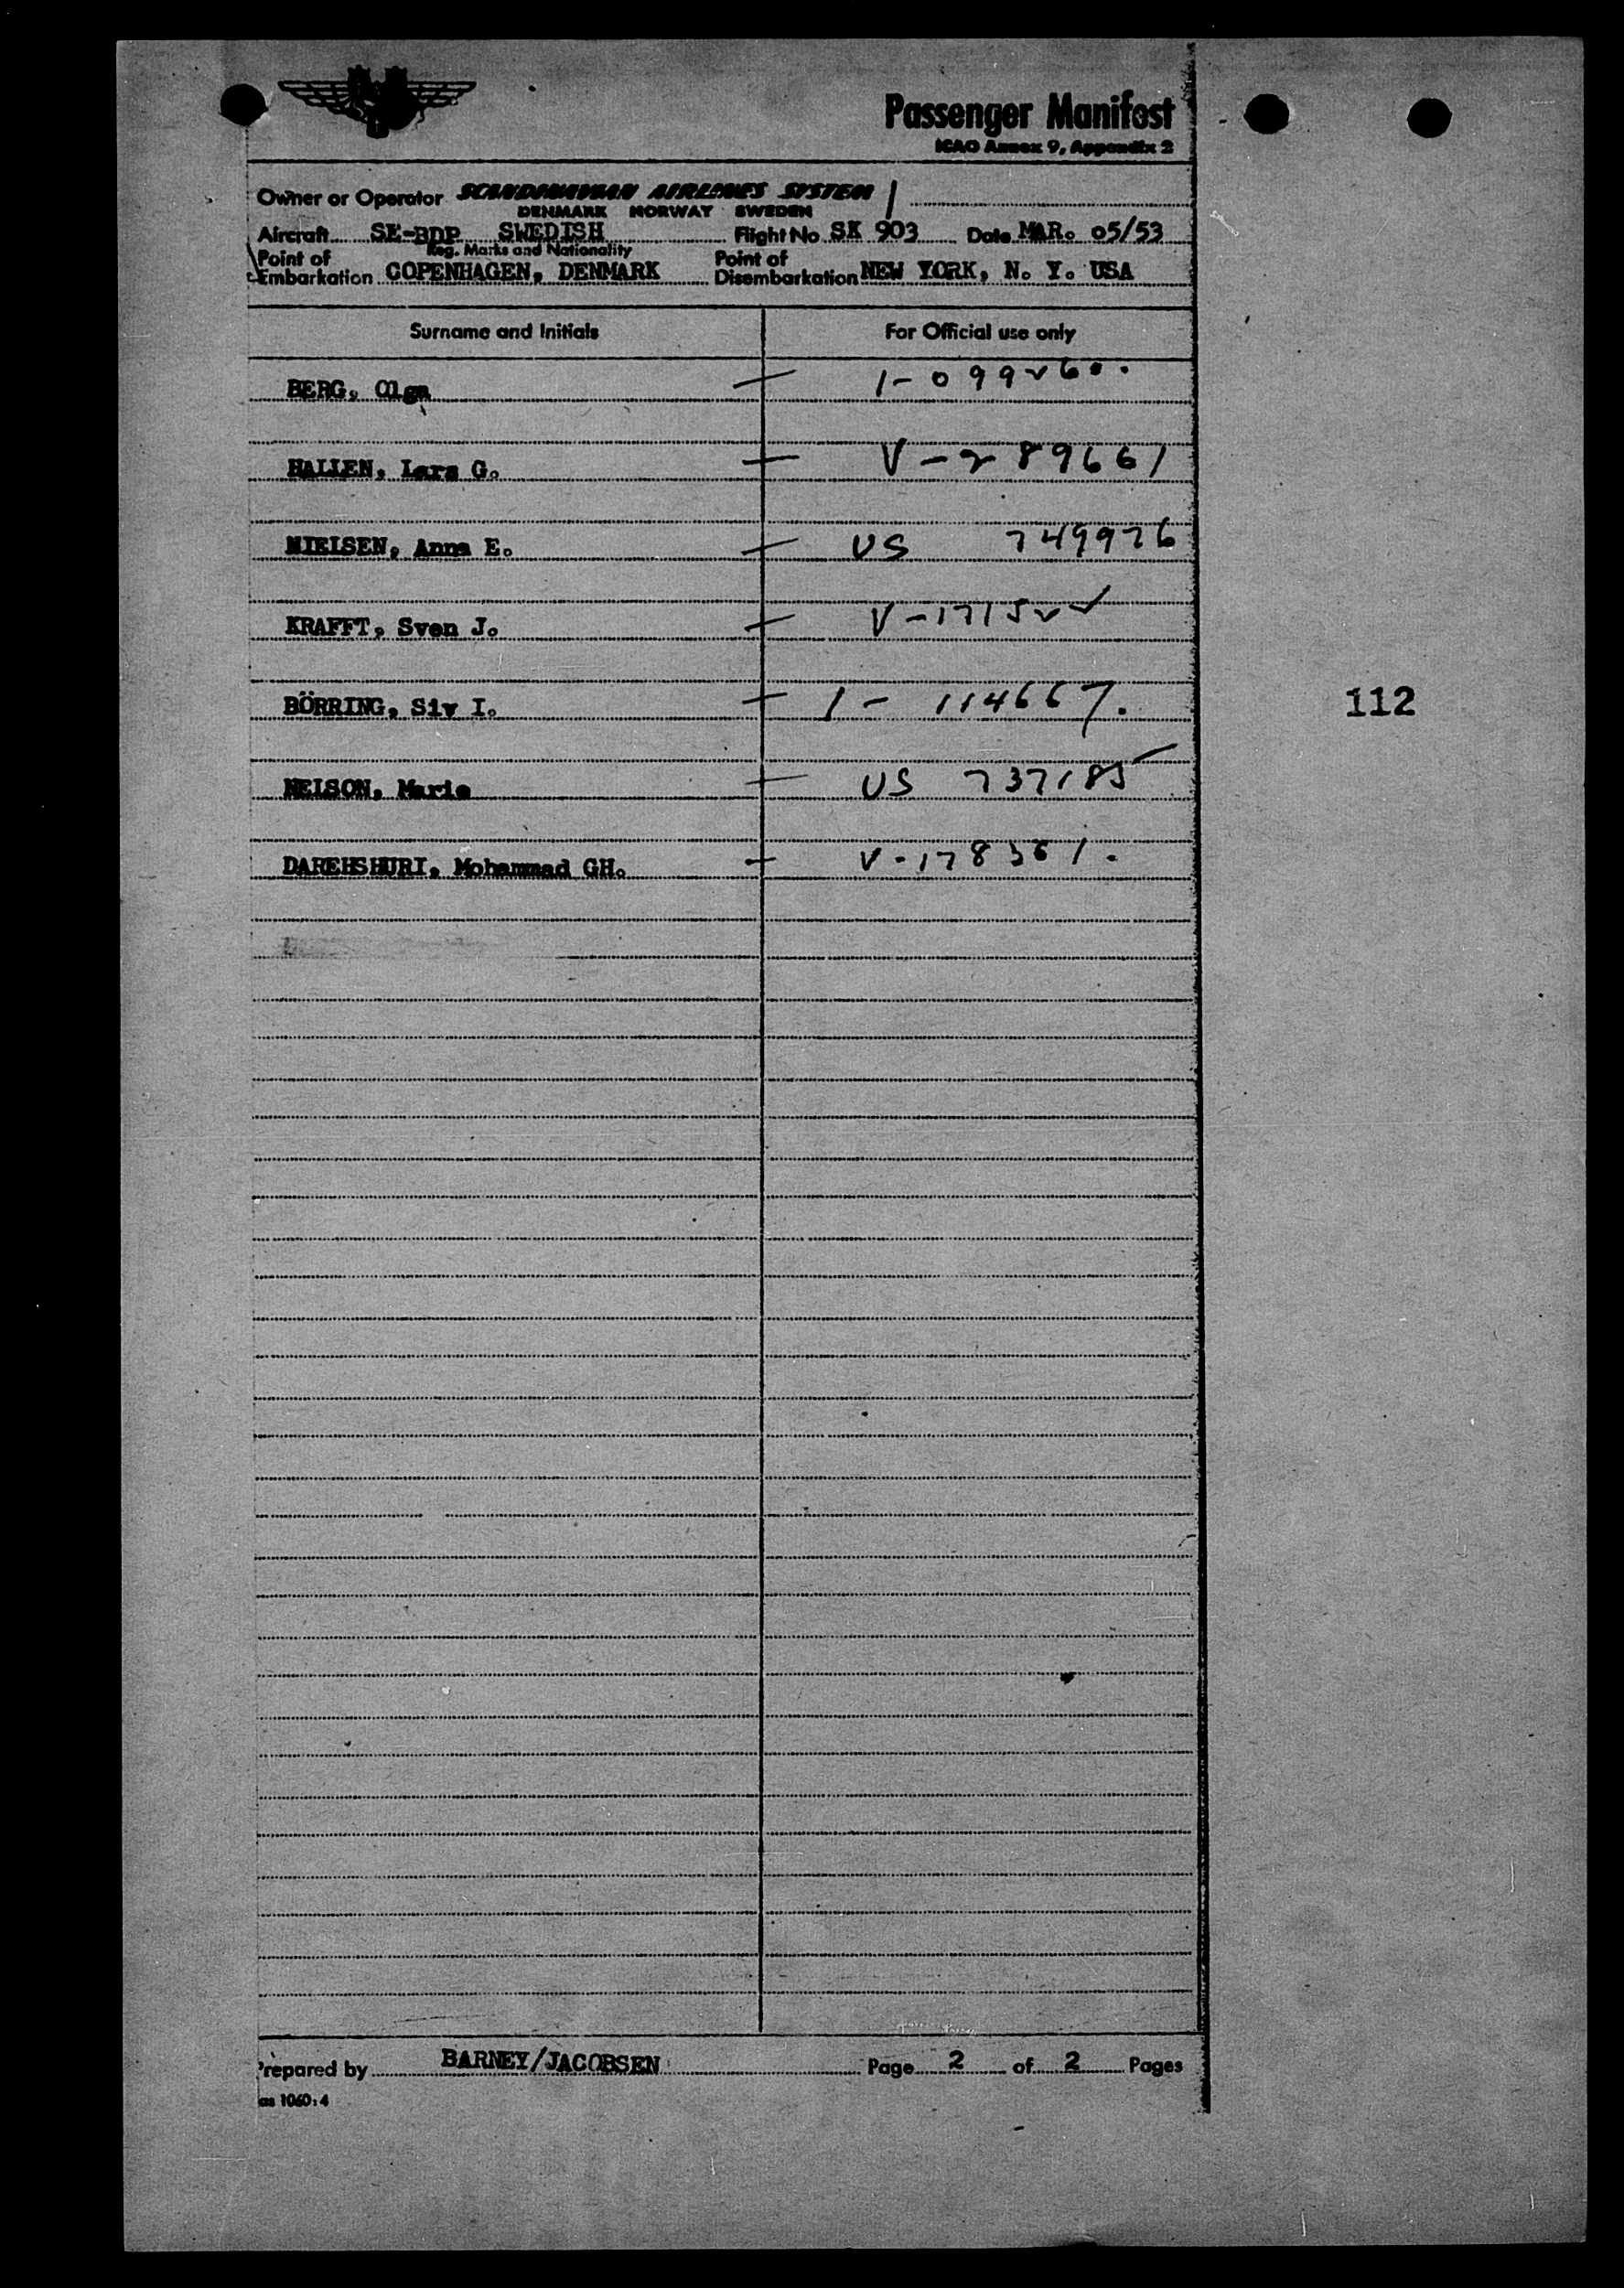 Passenger Manifest
ICAO Annex 9, Appendix 2
Owner or Operator SCANDINAVIAN AIRLINES SYSTEM
DENMARK NORWAY SWEDEN
Aircraft SE-BDP SWEDISH Flight No SK 903 Date MAR. 05/53
Reg. Marks and Nationality
Point of Embarkation COPENHAGEN, DENMARK Point of Disembarkation NEW YORK, N. Y. USA
Surname and Initials For Official use only
BERG, Olga 1-099260.
HALLEN, Lars G. V-289661
NIELSEN, Anna E. US 749976
KRAFFT, Sven J. V-171522
BÖRRING, Siv I. 1- 114667.
112
NELSON, Marie US 737185
DAREHSHURI, Mohammad GH. V-178361.
Prepared by BARNEY/JACOBSEN Page 2 of 2 Pages
as 1060:4